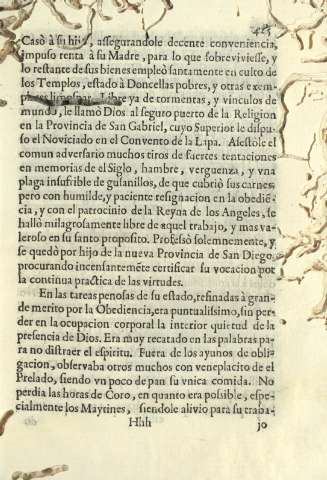 Casò à su hija, assegurandole decente conveniencia,
impuso renta à su Madre, para lo que sobreviviesse, y
lo restante de sus bienes empleò santamente en culto de
los Templos, estado à Doncellas pobres, y otras exem-
plares limosnas. Libre ya de tormentas, y vinculos de
mundo, le llamò Dios al seguro puerto de la Religion
en la Provincia de San Gabriel, cuyo Superior le dispu-
so el Noviciado en el Convento de la Lapa. Asestòle el
comun adversario muchos tiros de fuertes tentaciones
en memorias de el Siglo, hambre, verguenza, y vna
plaga insufrible de gusanillos, de que cubriò sus carnes,
pero con humilde, y paciente resignacion en la obediē-
cia, y con el patrocinio de la Reyna de los Angeles, se
hallò milagrosamente libre de aquel trabajo, y mas va-
leroso en su santo proposito. Professò solemnemente, y
se quedò por hijo de la nueva Provincia de San Diego,
procurando incensantemēte certificar su vocacion por
la continua practica de las virtudes.
En las tareas penosas de su estado, refinadas à gran-
de merito por la Obediencia, era puntualissimo, sin per-
der en la ocupacion corporal la interior quietud de la
presencia de Dios. Era muy recatado en las palabras pa-
ra no distraer el espiritu. Fuera de los ayunos de obli-
gacion, observaba otros muchos con veneplacito de el
Prelado, siendo vn poco de pan su vnica comida. No
perdia las horas de Coro, en quanto era possible, espe-
cialmente los Maytines, siendole alivio para su traba-
Hhh jo